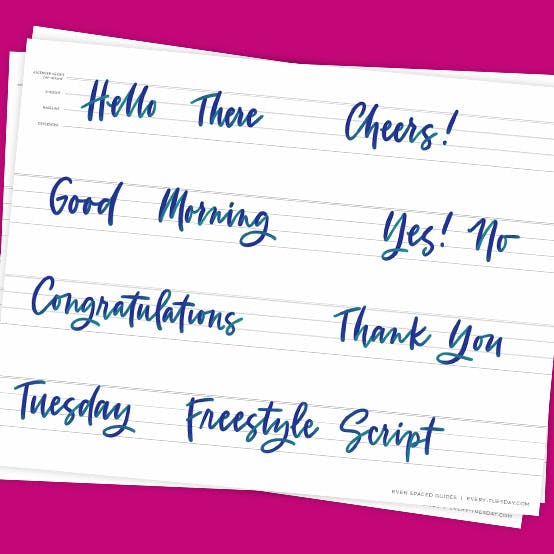 ASCENDER HEIGHT
CAP HEIGHT
X-HEIGHT
BASELINE
DESCENDER
Hello There Cheers!
Good Morning Yes! No
Congratulations Thank You
Tuesday Freestyle Script
EVEN SPACED GUIDES | EVERY-TUESDAY.COM
EVERY-TUESDAY.COM